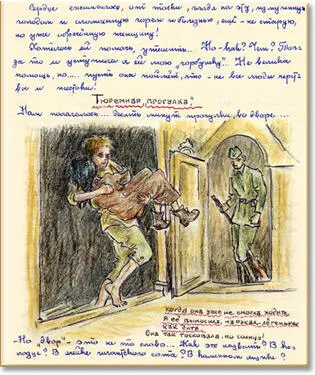 Сердце сжималось, от тоски, глядя на эту, измученную
голодом и сломленную горем и болезнью, ещё – не старую,
но уже обречённую женщину!
Хотелось ей помочь, утешить... Но – как? Чем?
за то и уступила я ей мою "горбушку"... Не велика
помощь, но.... пусть она поймёт, что – не все люди черст-
вы и жестоки.
Тюремная "прогулка"
Нам полагалось.... десять минут прогулки, во дворе....
Когда она уже не смогла ходить,
я её выносила, на руках, – легенькую
как дитя.
Она так тосковала по солнцу!
– Но "двор" – это не то слово... Как это назвать? В ко-
лодце? В ячейке гигантского сота? В каменном мешке?